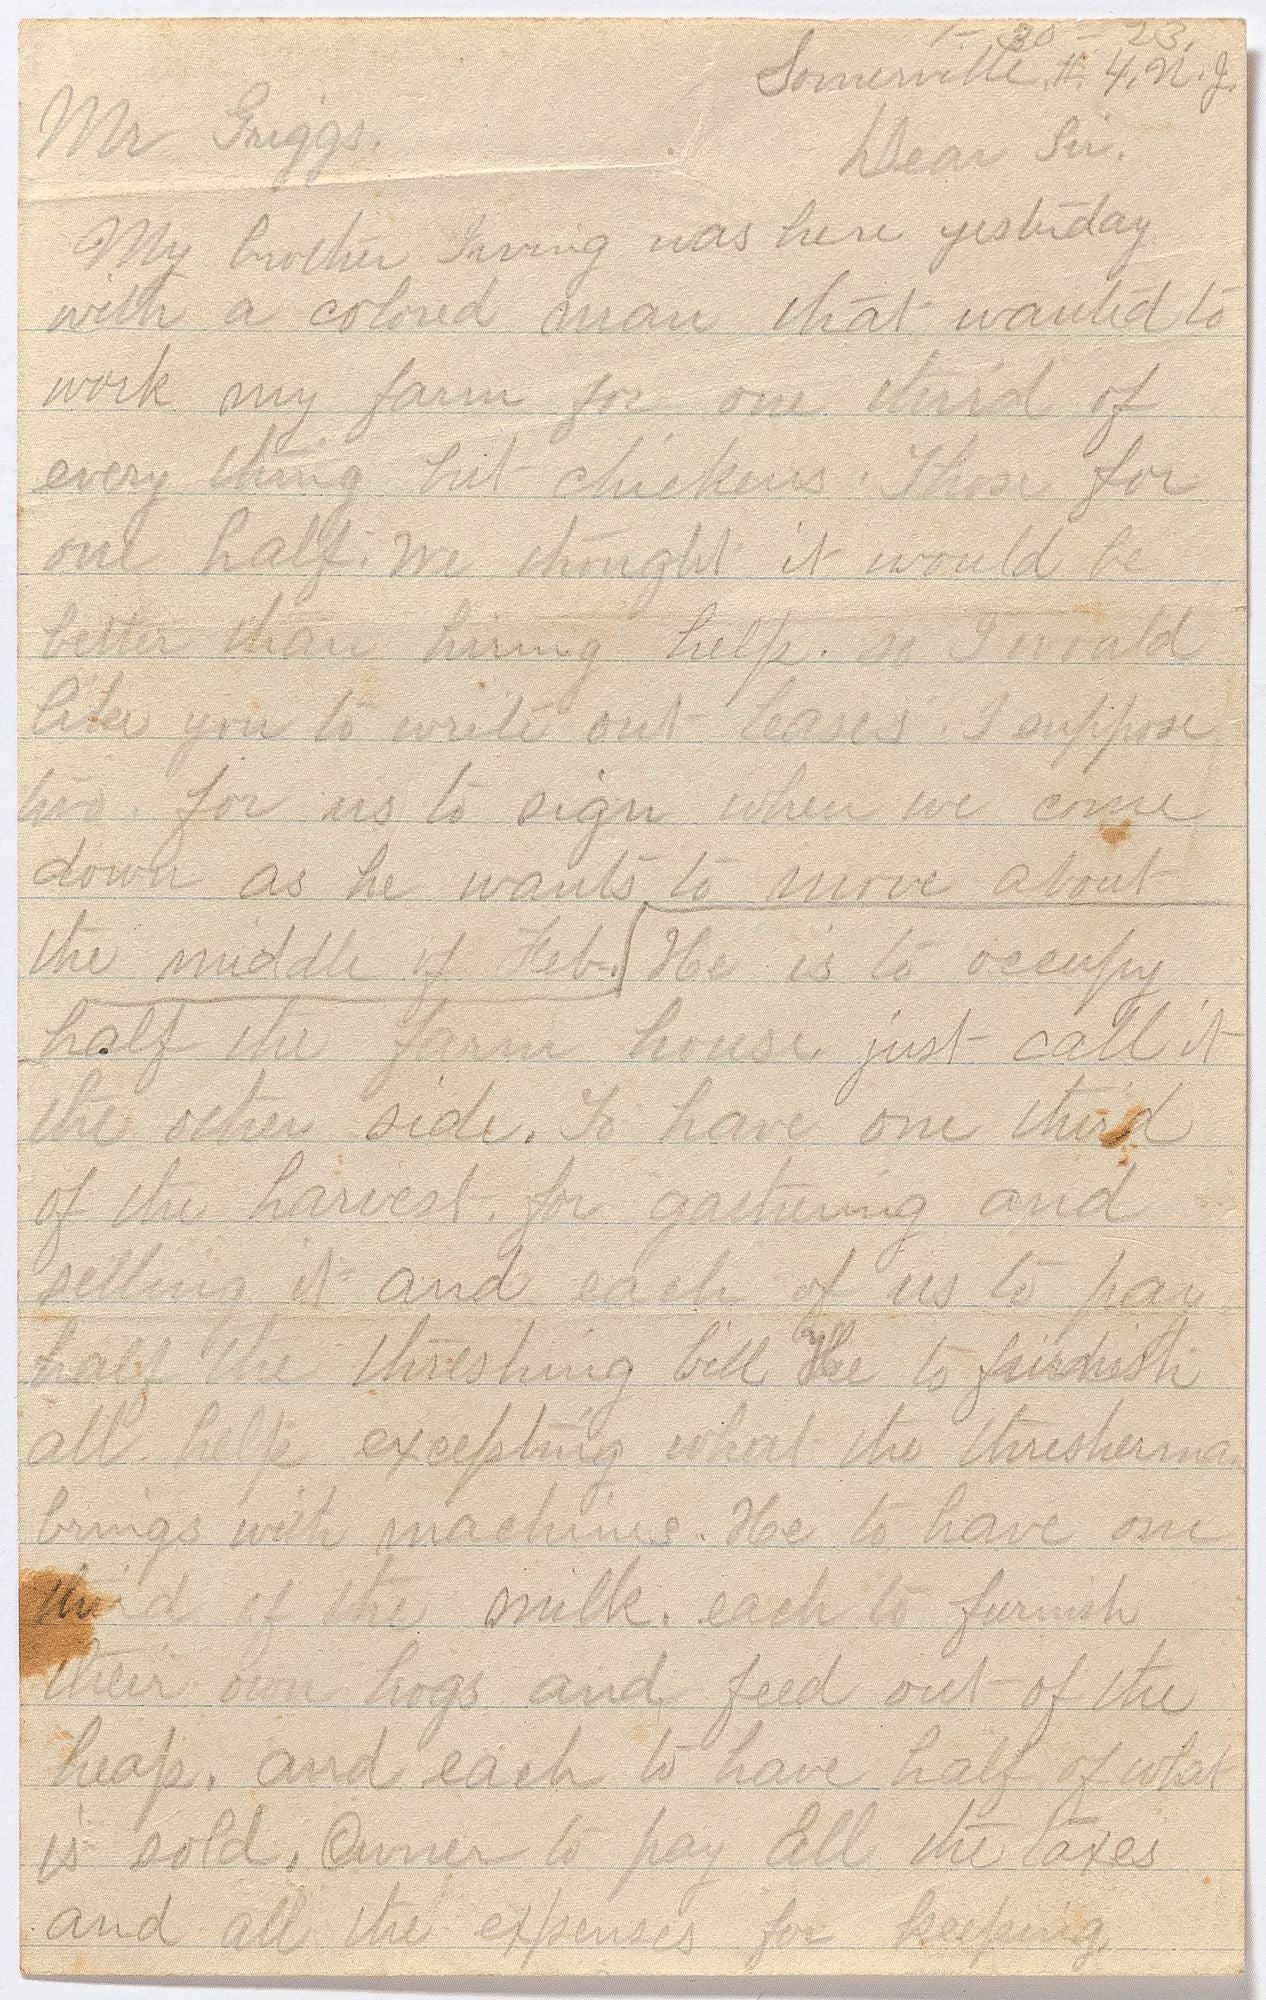 1-30-23.
Somerville. #. 4, N. J.
Mr Griggs.
Dear Sir.
My brother Irving was here yesterday
with a colored man that wanted to
work my farm for one third of
every thing but chickens. Those for
one half. We thought it would be
better than hiring help. so I would
like you to write out leases. I suppose
two. for us to sign when we come
down as he wants to move about
the middle of Feb. He is to occupy
half the farm house. just call it
the other side. To have one third
of the harvest. for gathering and
selling it and each of us to pay
half the threshing bill He to furnish
all help excepting what the thresherma
brings with machines. He to have one
third of the milk. each to furnish
their own hogs and feed out of the
heap. and each to have half of what
is sold. Owner to pay all the taxes
and all the expenses for keeping